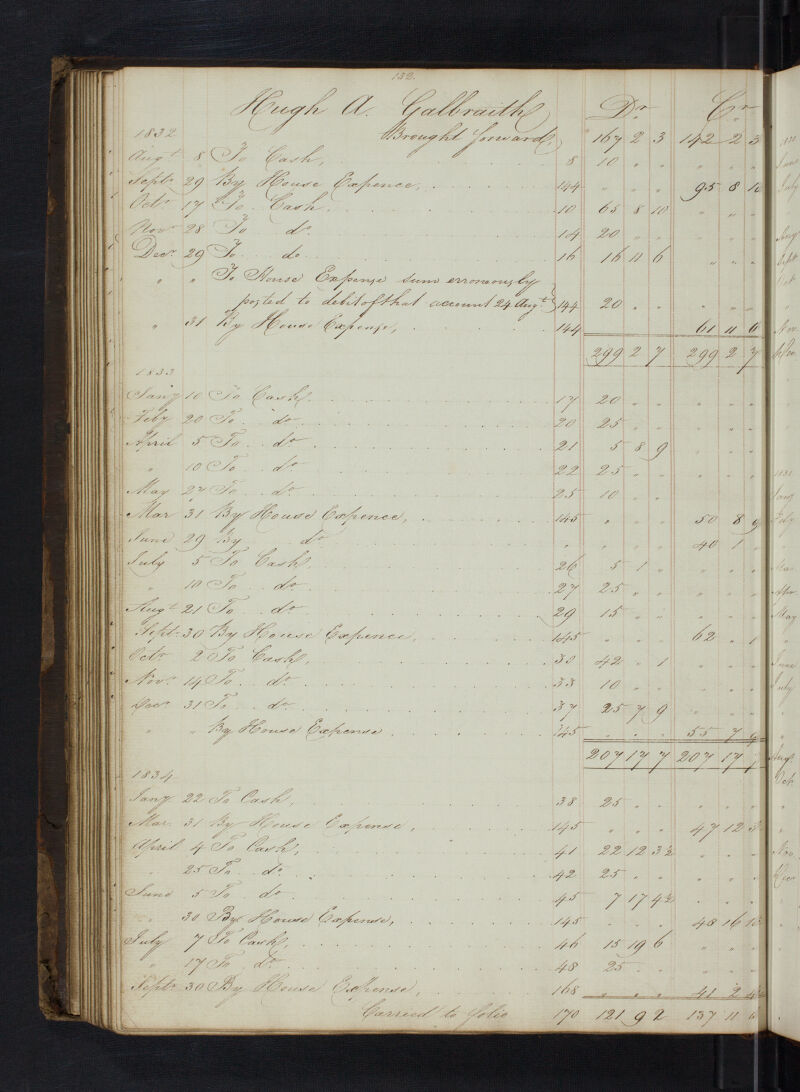 132.
Hugh A. Galbraith Dr Cr
1832 Brought forward, 167 2 3 142 2 3
Augt 8 To Cash, 8 10 " "
Septr 29 By House Expence, 144 95 8 10
Octr 17 To Cash 10 65 8 10
Novr 28 To do 14 20 " "
Decr 29 To do 16 16 11 6
" " To House Expense sum erroneously
posted to debit of that account 24 Augt } 144 20 " "
" 31 By House Expense, 144 61 11 6
299 2 7 299 2 7
1833
Jany 10 To Cash 17 20 " "
Feby 20 To do 20 25 " "
April 5 To do 21 5 8 9
" 10 To do 22 25 " "
May 27 To do 25 10 " "
Mar 31 By House Expence, 145 50 8 9
June 29 By do " 40 1 "
July 5 To Cash 26 5 1 "
" 10 To do 27 25 " "
Augt 21 To do 29 15 " "
Septr 30 By House Expence, 145 62 " 1
Octr 2 To Cash, 30 42 " 1
Novr 14 To do 33 10 " "
Decr 31 To do 37 25 7 9
" " By House Expense 145 55 7 9
207 17 7 207 17 7
1834
Jany 22 To Cash, 38 25 " "
Mar 31 By House Expense, 145 47 12 3
April 4 To Cash, 41 22 12 3½
" 25 To do 42 25 " "
June 5 To do 45 7 17 4½
" 30 By House Expense, 145 48 16
July 7 To Cash, 46 15 19 6
" 17 To do 48 25 " "
Septr 30 By House Expense, 168 41 2
Carried to folio 170 121 9 2 137 11